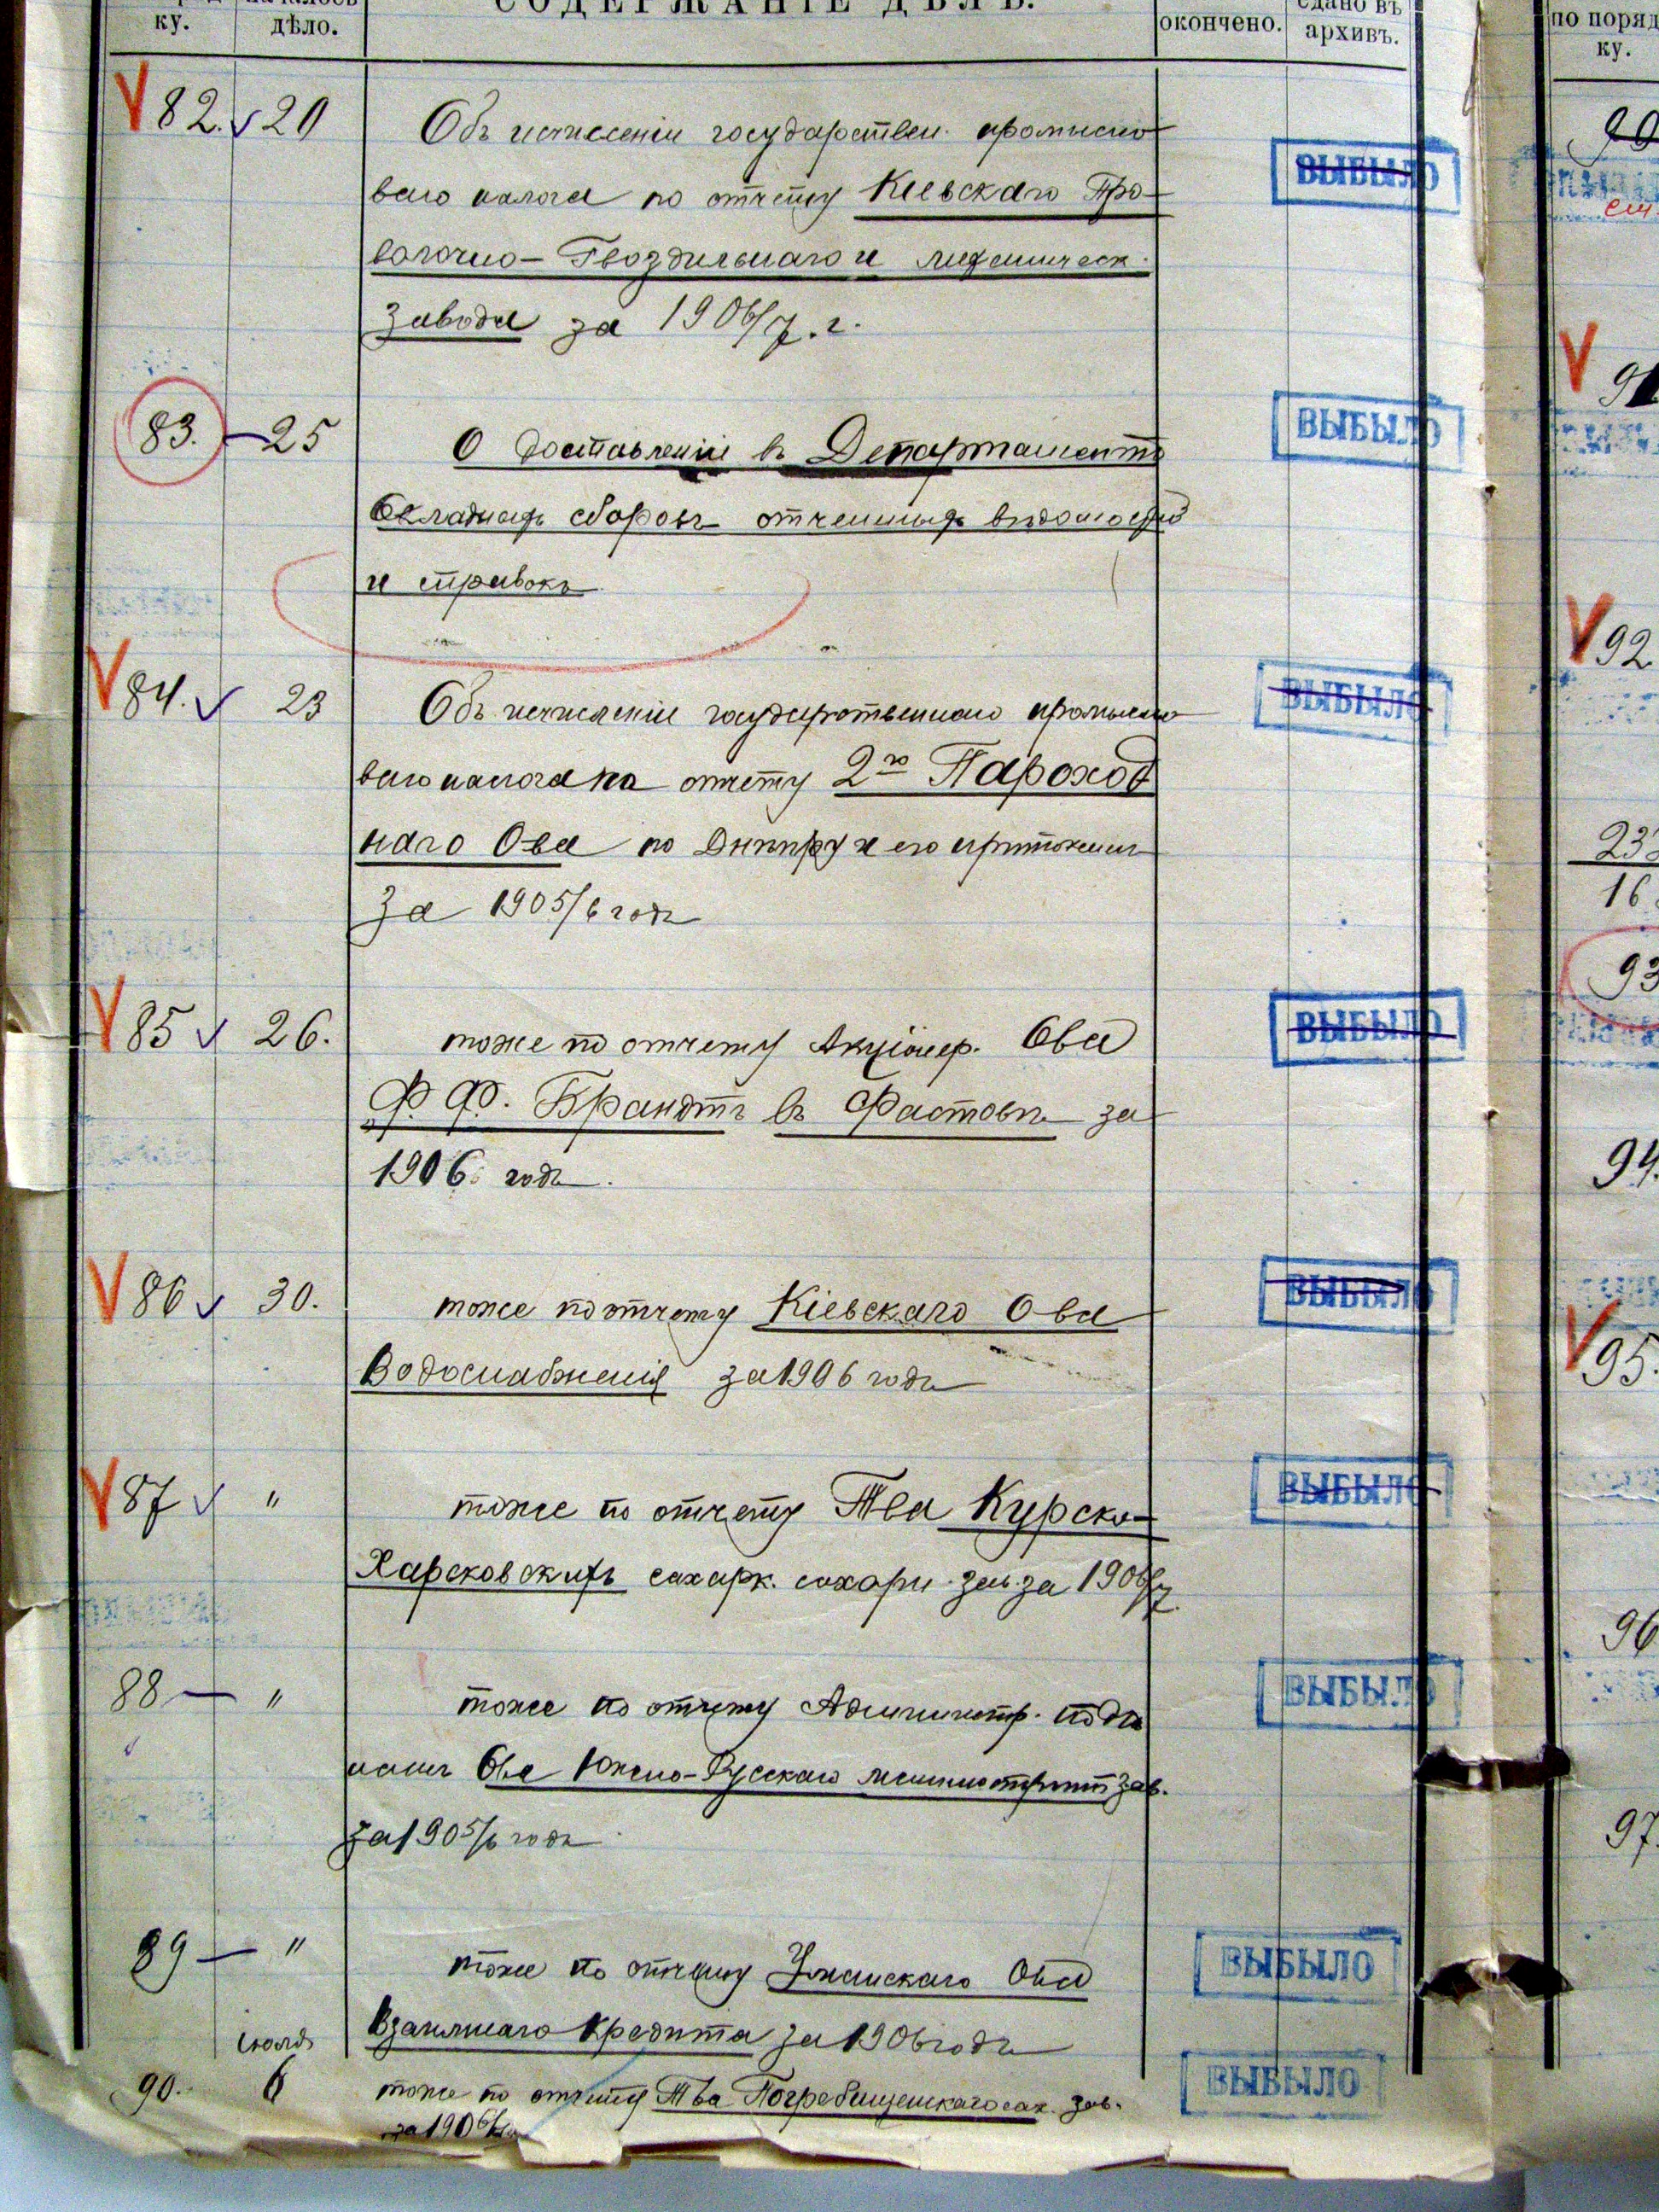 ку.
дѣло.
СОДЕРЖАНІЕ ДѢЛЪ.
окончено.
сдано въ
архивъ.
по поряд
ку.
82. 20
Объ исчисленіи государствен. промысло
ваго налога по отчету Кіевскаго Про-
волочно-Гвоздильнаго и механическ.
завода за 1906/7. г.
ВЫБЫЛО
83. 25
О доставленіи въ Департаментъ
Окладныхъ сборовъ отчетныхъ вѣдомостей
и справокъ
ВЫБЫЛО
84. 23
Объ исчисленіи государственнаго промысло
ваго налога по отчету 2го Пароход
наго Ова по Днѣпру и его притокамъ
за 1905/6 годъ
ВЫБЫЛО
85 26.
тоже по отчету Акціонер. Ова
Ф. Ф. Брандтъ въ Фастовѣ за
1906 годъ.
ВЫБЫЛО
86 30.
тоже по отчету Кіевскаго Ова
Водоснабженія за 1906 годъ
ВЫБЫЛО
87 "
тоже по отчету Тва Курско-
Харьковскихъ сахарн. зав. за 1906/7
ВЫБЫЛО
88 — "
тоже по отчету Администр. по дѣ
ламъ Ова Южно-Русскаго машиностроит зав.
за 1905/6 годъ
ВЫБЫЛО
89 — "
тоже по отчету Уманскаго Ова
Взаимнаго Кредита за 1906 годъ
ВЫБЫЛО
Іюля
90. 6
тоже по отчету Тва Погребищенскаго сах. зав.
за 1906/7
ВЫБЫЛО
90
91
92.
16
93
94.
95.
96
97.